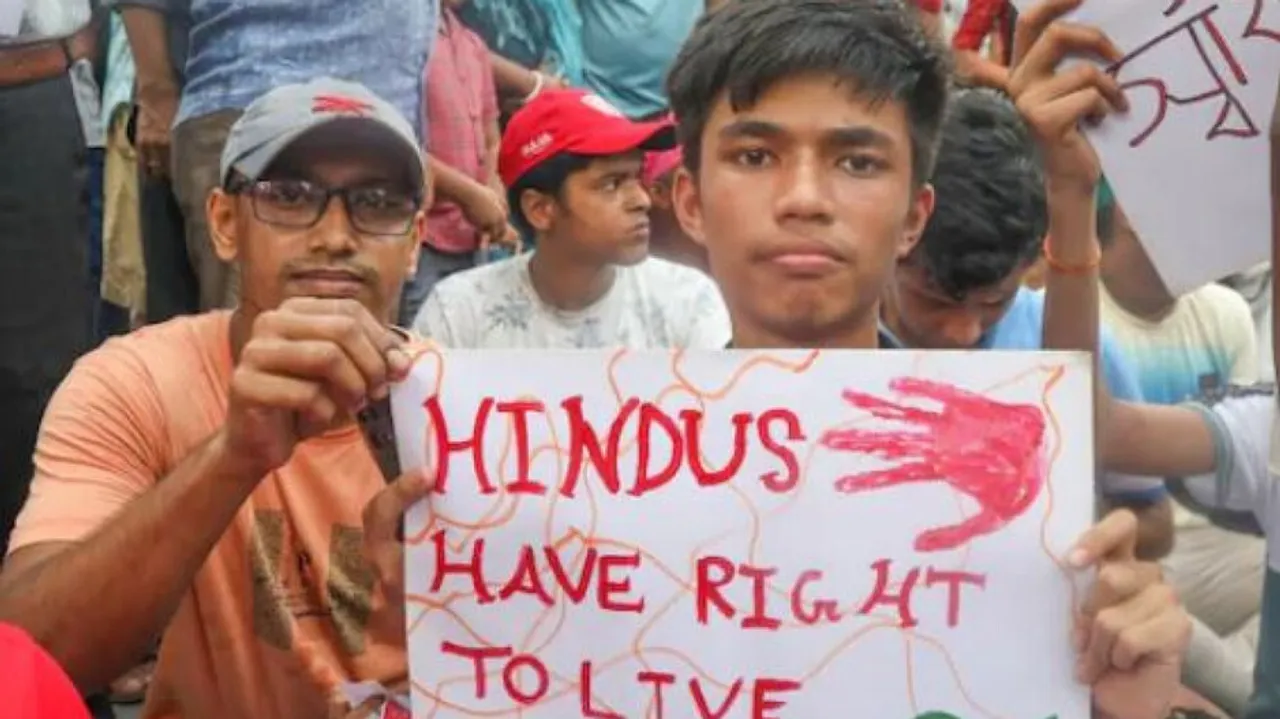 HINDUS
HAVE RIGHT
TO LIVE